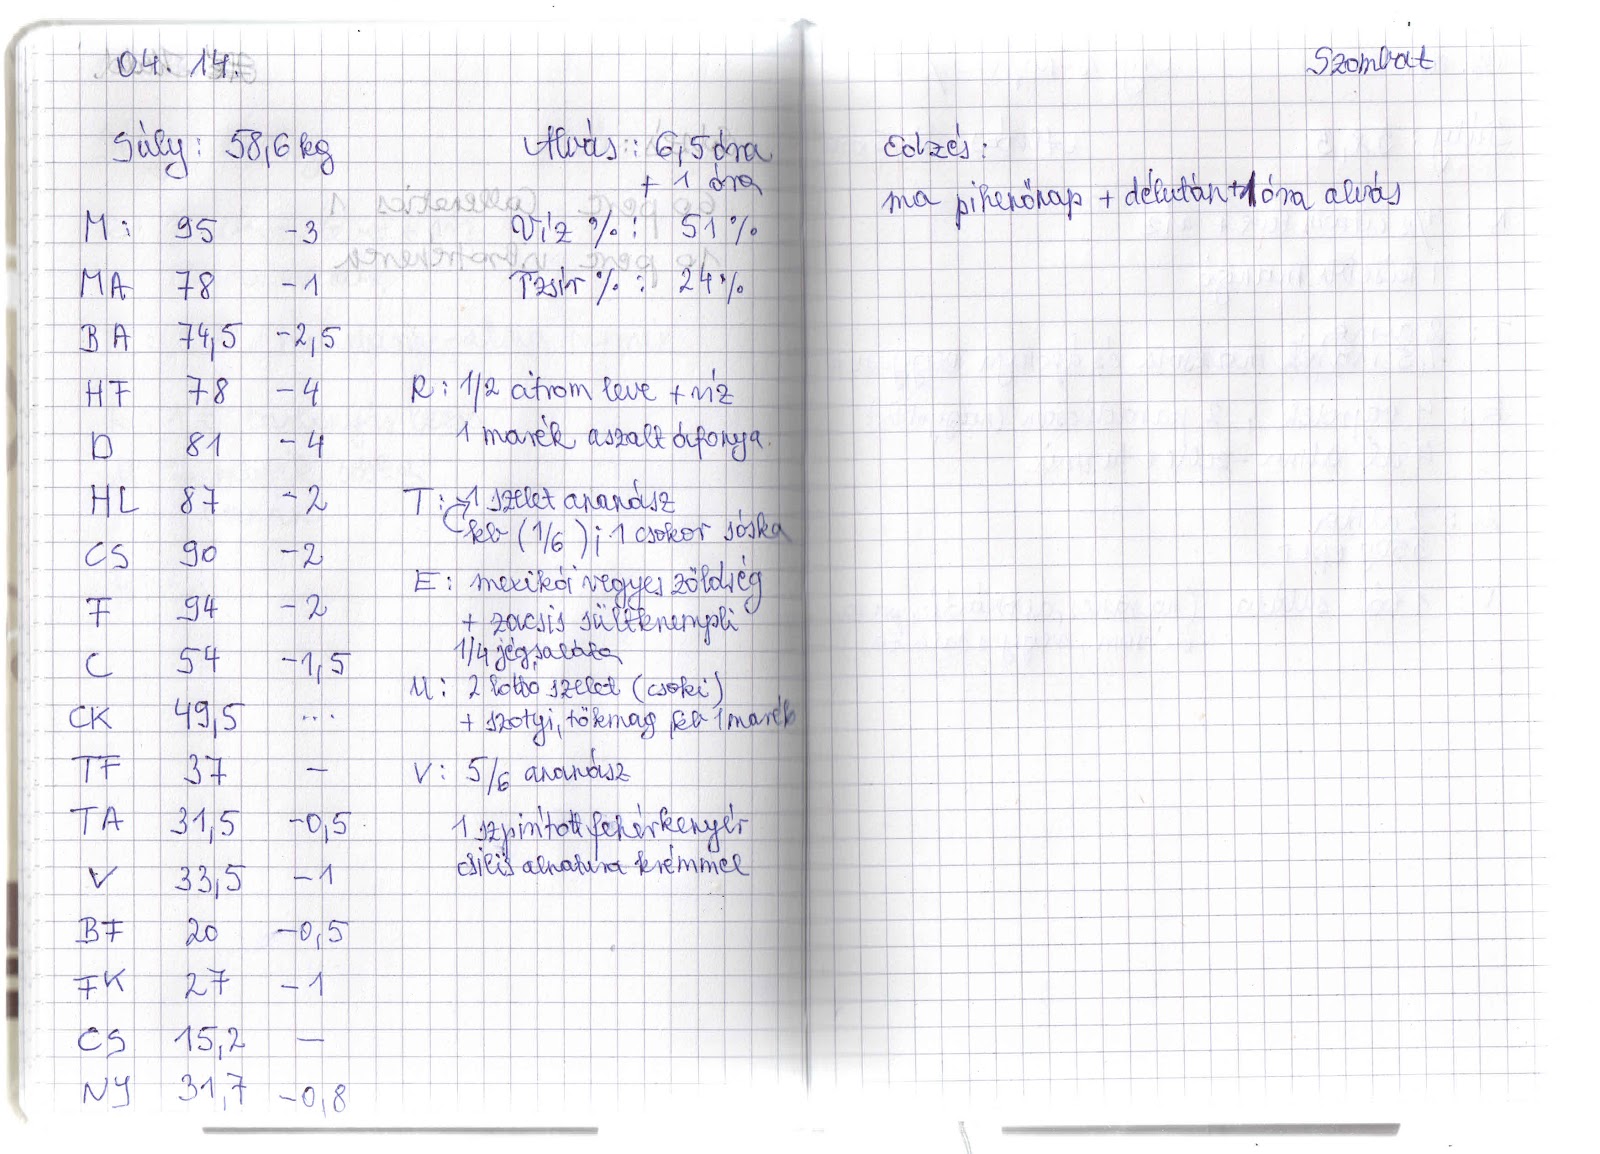 04. 14.
Szombat
Súly: 58,6 kg
Alvás: 6,5 óra
+ 1 óra
M: 95 -3
Víz %: 51%
MA 78 -1
Tzsír %: 24%
BA 74,5 -2,5
HF 78 -4
D 81 -4
HL 87 -2
CS 90 -2
F 94 -2
C 54 -1,5
CK 49,5 ...
TF 37 –
TA 31,5 -0,5
V 33,5 -1
BF 20 -0,5
FK 27 -1
CS 15,2 —
NY 31,7 -0,8
R: 1/2 citrom leve + víz
1 marék aszalt áfonya.
T: 1 szelet ananász
kb (1/6); 1 csokor sóska
E: mexikói vegyes zöldség
+ zacsis sültkrumpli
1/4 jégsaláta
U: 2 lottó szelet (csoki)
+ szotyi, tökmag kb 1 marék
V: 5/6 ananász
1 sz pirított fehérkenyér
csilis alnatura krémmel
Edzés:
ma pihenőnap + délután +1 óra alvás